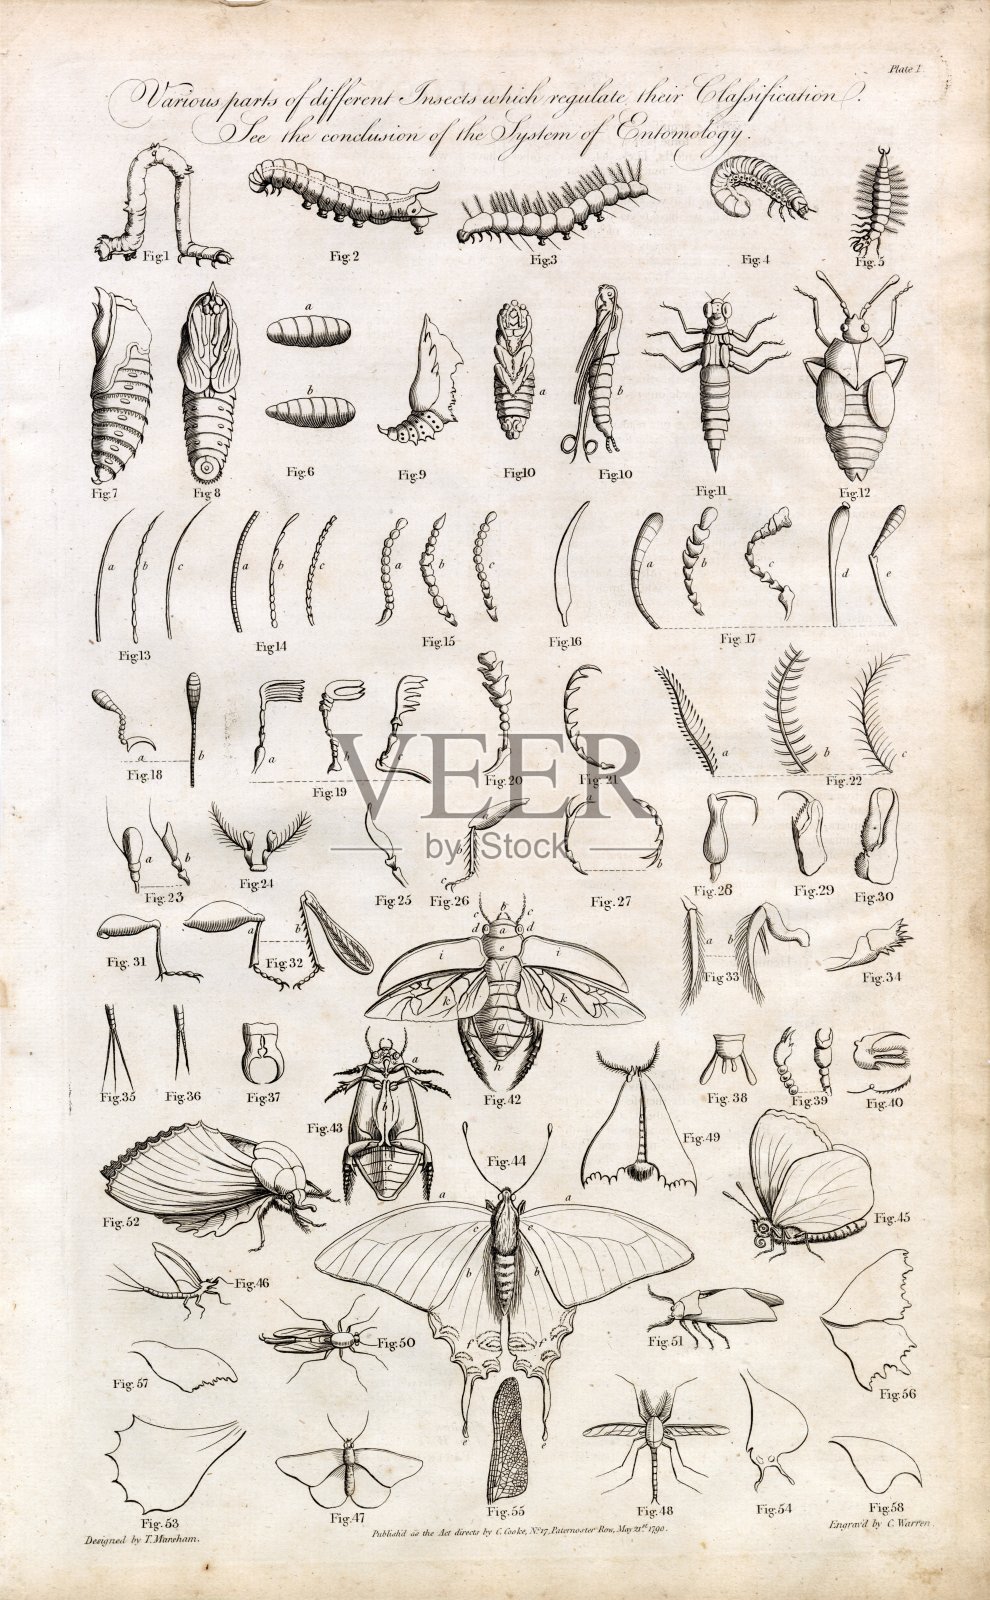 Plate I.
Various parts of different Insects which regulate their Classification.
See the conclusion of the System of Entomology.
Fig.1 Fig.2 Fig.3 Fig.4 Fig.5
a
b
a b
Fig.7 Fig.8 Fig.6 Fig.9 Fig.10 Fig.10 Fig.11 Fig.12
a b c a b c a b c a b c d e
Fig.13 Fig.14 Fig.15 Fig.16 Fig.17
a b a b a b c
Fig.18 Fig.19 Fig.20 Fig.21 Fig.22
VEER
by iStock
a b a b c a b
Fig.23 Fig.24 Fig.25 Fig.26 Fig.27 Fig.28 Fig.29 Fig.30
a b c b c d a d e i i k k g h a b
Fig.31 Fig.32 Fig.33 Fig.34
Fig.35 Fig.36 Fig.37 Fig.42 Fig.38 Fig.39 Fig.40
a b c
Fig.43 Fig.44 Fig.49
Fig.52 Fig.45
a a c c b b f f e e
Fig.46
Fig.50 Fig.51
Fig.57 Fig.56
Fig.53 Fig.47 Fig.55 Fig.48 Fig.54 Fig.58
Designed by T. Marsham. Publish'd as the Act directs by C. Cooke, No. 17, Paternoster Row, May 21st 1790. Engrav'd by C. Warren.